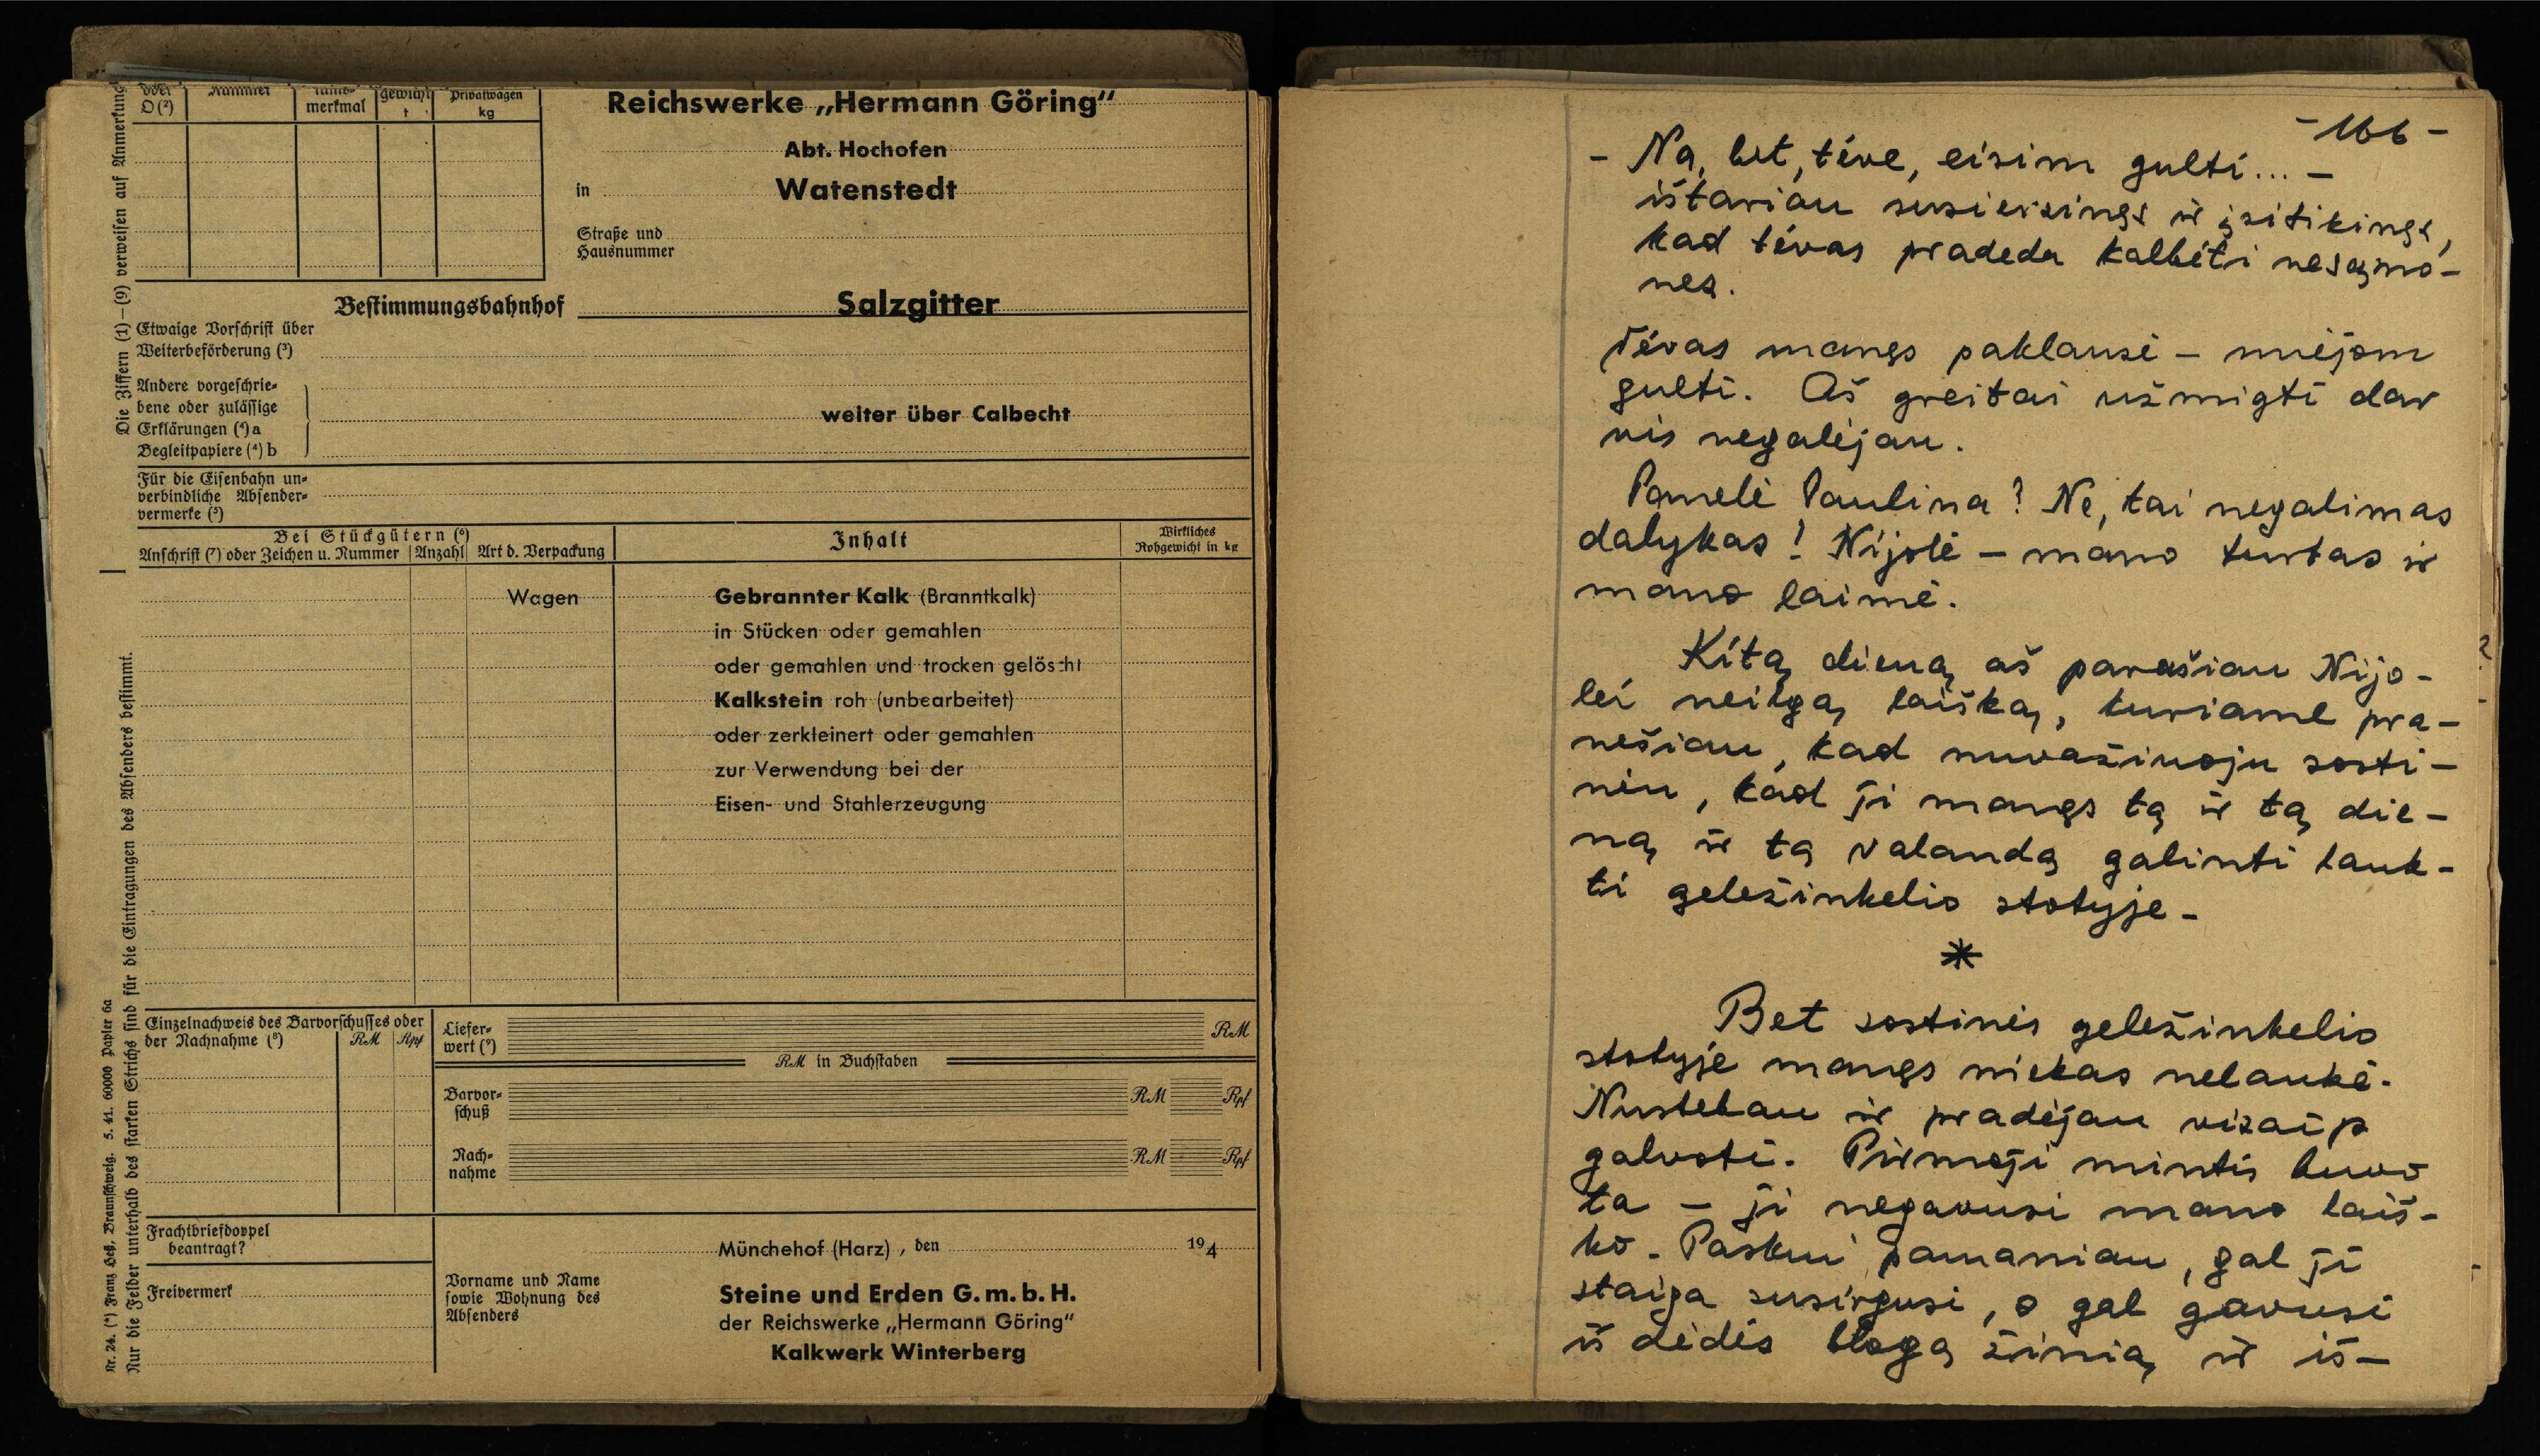 Die Ziffern (1)–(9) verweisen auf Anmerkung
D (²)
merkmal
gewicht
t
Privatwagen
kg
Reichswerke „Hermann Göring“
Abt. Hochofen
in Watenstedt
Straße und
Hausnummer
Bestimmungsbahnhof Salzgitter
Etwaige Vorschrift über
Weiterbeförderung (³)
Andere vorgeschrie-
bene oder zulässige
Erklärungen (⁴) a
Begleitpapiere (⁴) b
weiter über Calbecht
Für die Eisenbahn un-
verbindliche Absender-
vermerke (⁵)
Bei Stückgütern (⁶)
Anschrift (⁷) oder Zeichen u. Nummer Anzahl Art d. Verpackung
Inhalt
Wirkliches
Rohgewicht in kg
Wagen Gebrannter Kalk (Branntkalk)
in Stücken oder gemahlen
oder gemahlen und trocken gelöscht
Kalkstein roh (unbearbeitet)
oder zerkleinert oder gemahlen
zur Verwendung bei der
Eisen- und Stahlerzeugung
Einzelnachweis des Barvorschusses oder
der Nachnahme (⁸) RM Rpf
Liefer-
wert (⁹) RM
RM in Buchstaben
Barvor-
schuß RM Rpf
Nach-
nahme RM Rpf
Frachtbriefdoppel
beantragt?
Freivermerk
Münchehof (Harz), den 194
Vorname und Name
sowie Wohnung des
Absenders
Steine und Erden G. m. b. H.
der Reichswerke „Hermann Göring“
Kalkwerk Winterberg
Nr. 24. (*) Franz Heß, Braunschweig. 5. 41. 60000 Papier 6a
Nur die Felder unterhalb des starken Strichs sind für die Eintragungen des Absenders bestimmt.
- 166 -
- Na, bet, tėve, eisim gulti... -
ištariau susierzinęs ir įsitikinęs,
kad tėvas pradeda kalbėti nesąmo-
nes.
Tėvas manęs paklausė - nuėjom
gulti. Aš greitai užmigti dar
vis negalėjau.
Panelė Paulina? Ne, tai negalimas
dalykas! Nijolė - mano turtas ir
mano laimė.
Kitą dieną aš parašiau Nijo-
lei neilgą laišką, kuriame pra-
nešiau, kad nuvažiuoju sosti-
nėn, kad ji manęs tą ir tą die-
ną ir tą valandą galinti lauk-
ti geležinkelio stotyje -
*
Bet sostinės geležinkelio
stotyje manęs niekas nelaukė.
Nustebau ir pradėjau visaip
galvoti. Pirmoji mintis buvo
ta - ji negavusi mano laiš-
ko. Paskui pamaniau, gal ji
staiga susirgusi, o gal gavusi
iš dėdės blogą žinią ir iš-